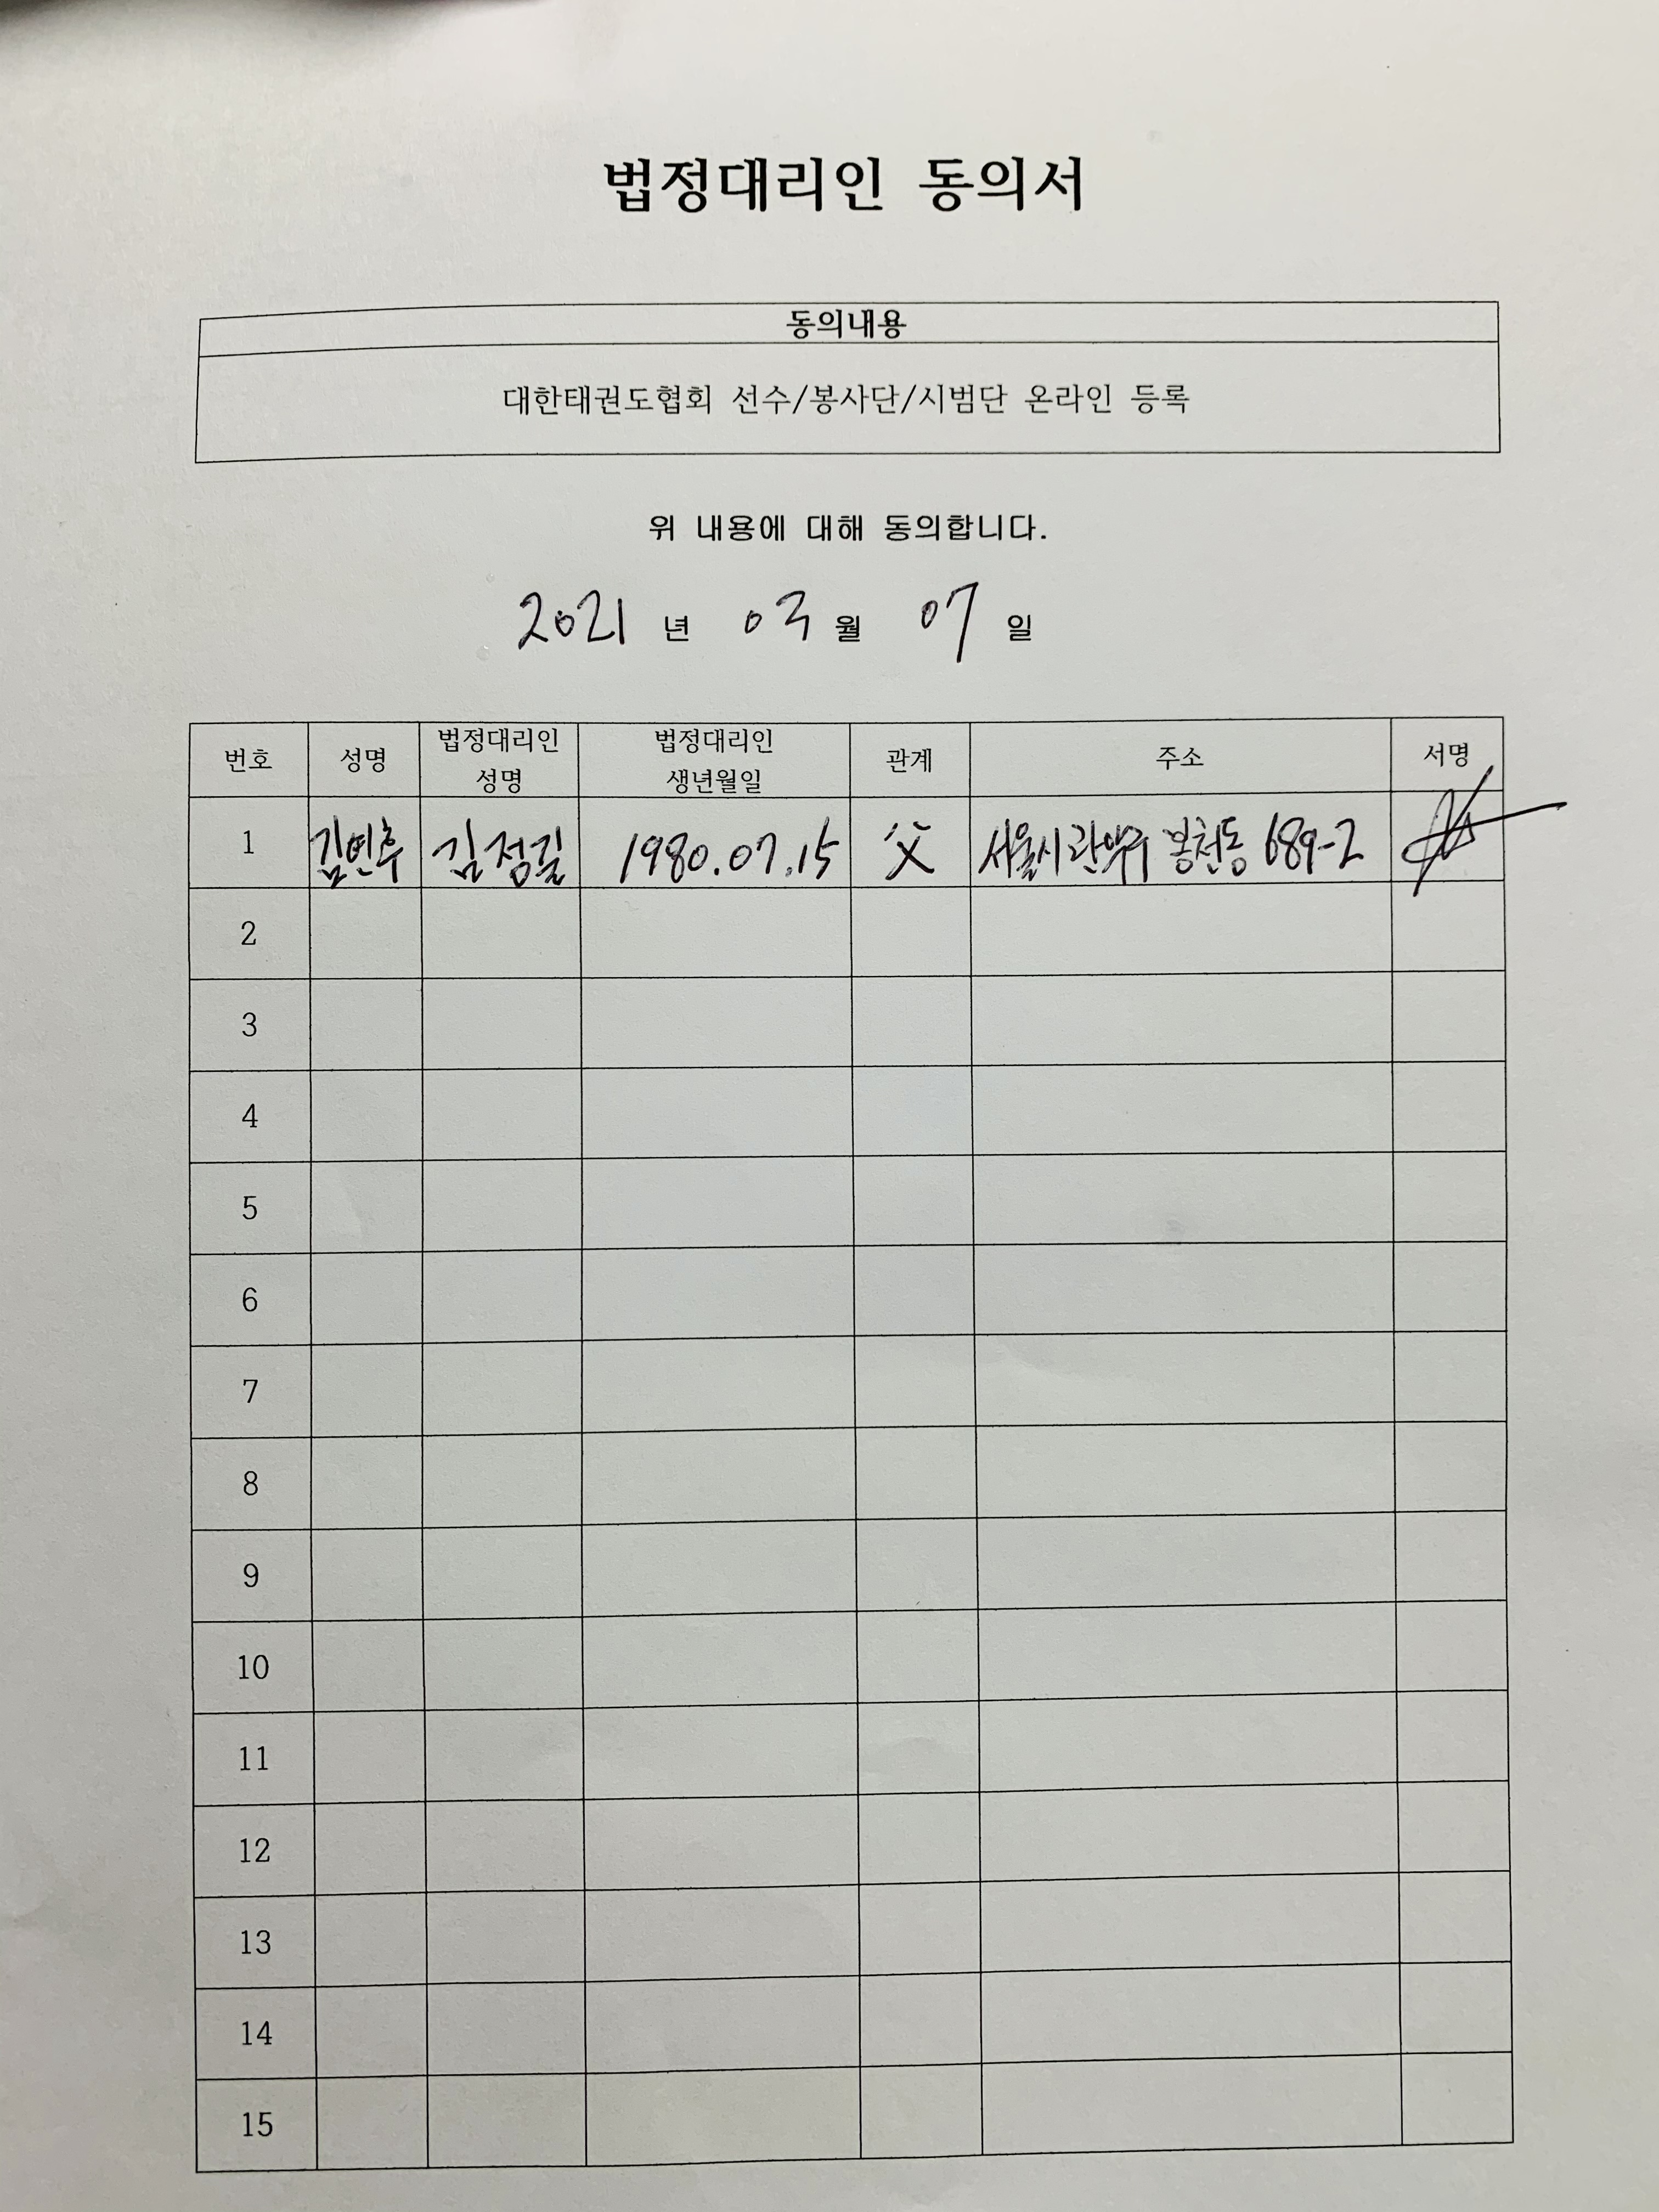 법정대리인 동의서
동의내용
대한태권도협회 선수/봉사단/시범단 온라인 등록
위 내용에 대해 동의합니다.
2021 년 03 월 07 일
번호 성명 법정대리인 성명 법정대리인 생년월일 관계 주소 서명
1 김연후 김정길 1980.07.15 父 서울시 관악구 봉천동 689-2
2
3
4
5
6
7
8
9
10
11
12
13
14
15